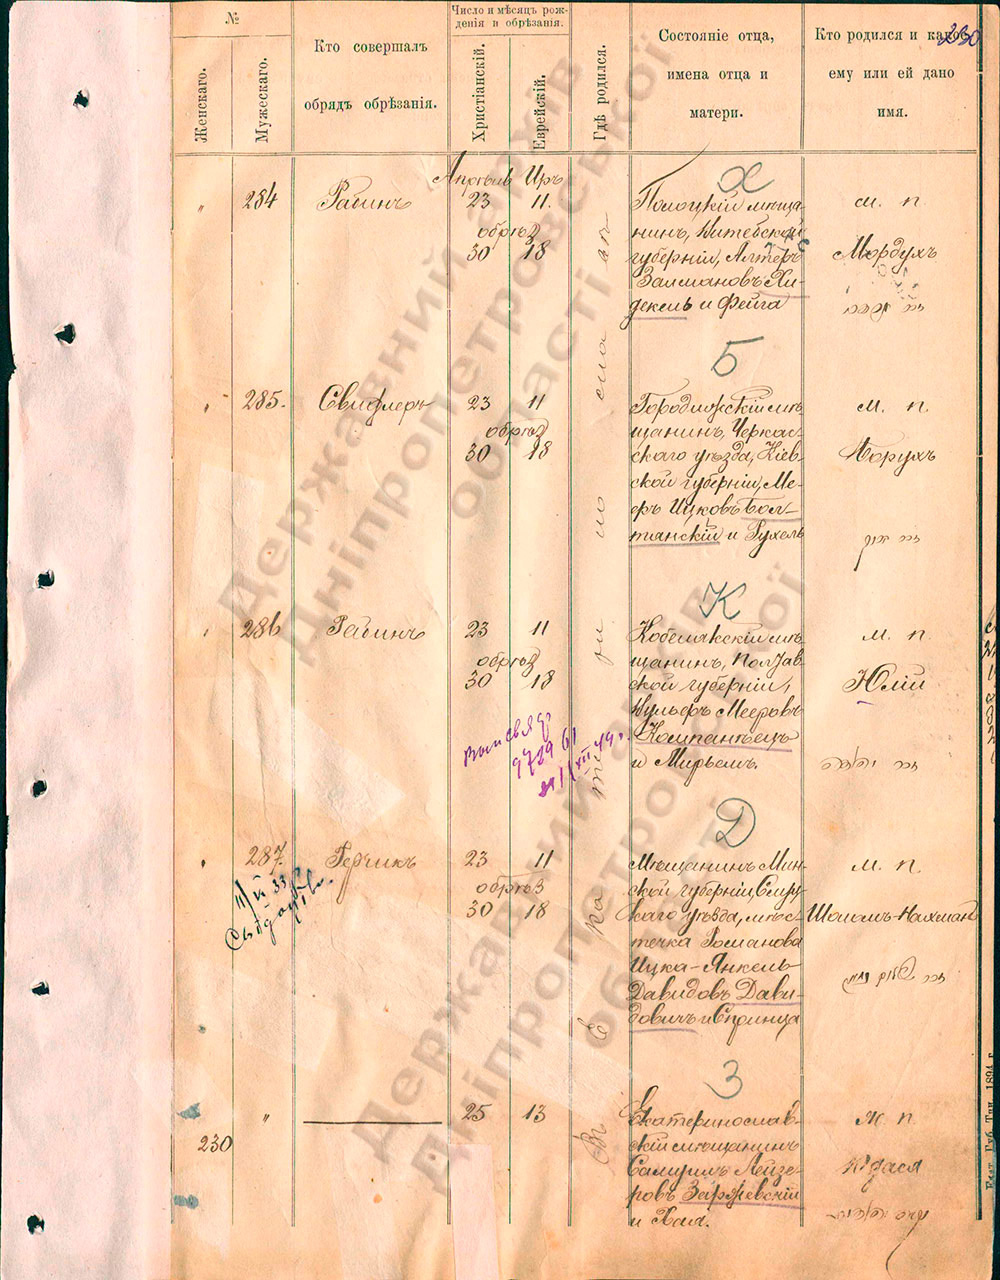 230
№
Женскаго.
Мужескаго.
Кто совершалъ
обрядъ обрѣзанія.
Число и мѣсяцъ рож-
денія и обрѣзанія.
Христіанскій.
Еврейскій.
Гдѣ родился.
Состояніе отца,
имена отца и
матери.
Кто родился и какое
ему или ей дано
имя.
Апрѣль Иръ
Въ Екатеринославѣ
"
284
Рабинъ
23 11.
обрѣз
30 18
Х
Полоцкій мѣща-
нинъ, Витебской
губерніи, Алтеръ
Залмановъ Хи-
декель и Фейга
м. п.
Мордухъ
זכר מרדכי
"
285.
Свифлеръ
23 11
обрѣз
30 18
Б
Городищскій мѣ-
щанинъ, Черкас-
скаго уѣзда, Кіев-
ской губерніи, Ме-
еръ Ицковъ Бол-
тянскій и Рухель
м. п.
Борухъ
זכר ברוך
"
286
Рабинъ
23 11
обрѣз
30 18
К
Кобелякскій мѣ-
щанинъ, Полтав-
ской губерніи,
Вульфъ Мееровъ
Компанѣецъ
и Мирьемъ.
м. п.
Юлій
זכר
"
287.
Герчикъ
23 11
обрѣз
30 18
Д
Мѣщанинъ Мин-
ской губерніи, Слуц-
каго уѣзда, мѣс-
течка Романова
Ицка-Янкель
Давидовъ Дави-
довичъ и Спринца
м. п.
Шоломъ-Нахманъ
זכר שלום נחמן
230
"
25 13
З
Екатеринослав-
скій мѣщанинъ
Самуилъ Лейзе-
ровъ Заржевскій
и Хая.
ж. п.
Юдася
Державний архів
Дніпропетровської
області
Державний архів
Дніпропетровської
області
Екат. Губ. Тип. 1894 г.